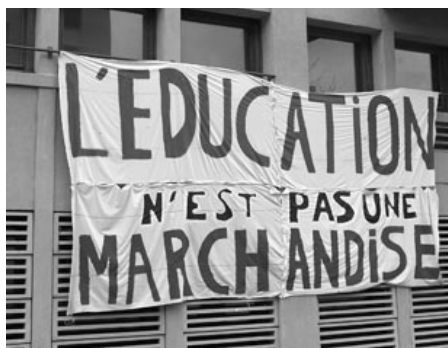 L'EDUCATiON
N'EST PAS UNE
MARCHANDiSE